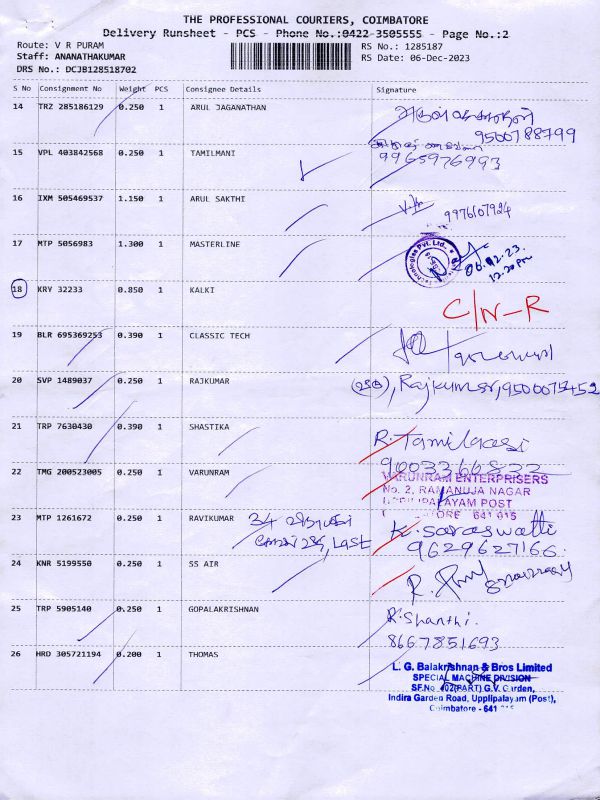 THE PROFESSIONAL COURIERS, COIMBATORE
Delivery Runsheet - PCS - Phone No.:0422-3505555 - Page No.:2
Route: V R PURAM
RS No.: 1285187
Staff: ANANATHAKUMAR
RS Date: 06-Dec-2023
DRS No.: DCJB128518702
S No Consignment No Weight PCS Consignee Details Signature
14 TRZ 285186129 0.250 1 ARUL JAGANATHAN
9500788799
15 VPL 403842568 0.250 1 TAMILMANI
9965976993
16 IXM 505469537 1.150 1 ARUL SAKTHI
9976107924
17 MTP 5056983 1.300 1 MASTERLINE
Technologies Pvt. Ltd.
06.12.23
12.20 Pm
18 KRV 32233 0.850 1 KALKI
C/N-R
19 BLR 695369253 0.390 1 CLASSIC TECH
20 SVP 1489037 0.250 1 RAJKUMAR
Rajkumar, 9500075452
21 TRP 7630430 0.390 1 SHASTIKA
R. Tamilarasi
9003366832
22 TMG 200523005 0.250 1 VARUNRAM
VARUNRAM ENTERPRISERS
No. 2, RAMANUJA NAGAR
UPPILIPALAYAM POST
641 015
23 MTP 1261672 0.250 1 RAVIKUMAR 34
LAST
K. Saraswathi
9629627166.
24 KNR 5199550 0.250 1 SS AIR
R.
25 TRP 5905140 0.250 1 GOPALAKRISHNAN
R. Shanthi.
8667851693
26 HRD 305721194 0.200 1 THOMAS
L. G. Balakrishnan & Bros Limited
SPECIAL MACHINE DIVISION
SF.No 402(PART) G.V. Garden,
Indira Garden Road, Upplipalayam (Post),
Coimbatore - 641